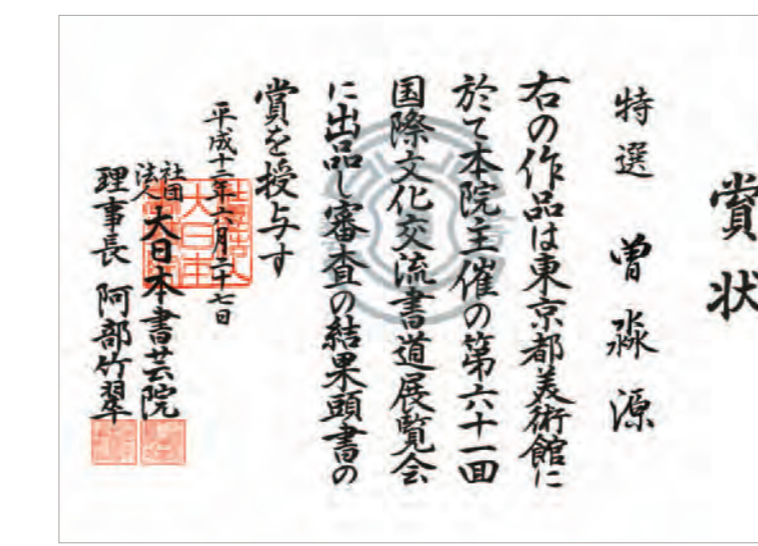 賞状
特選 曽淼源
右の作品は東京都美術館に
於て本院主催の第六十一回
国際文化交流書道展覧会
に出品し審査の結果頭書の
賞を授与す
平成十二年六月二十七日
社団法人 大日本書芸院
理事長 阿部竹翠